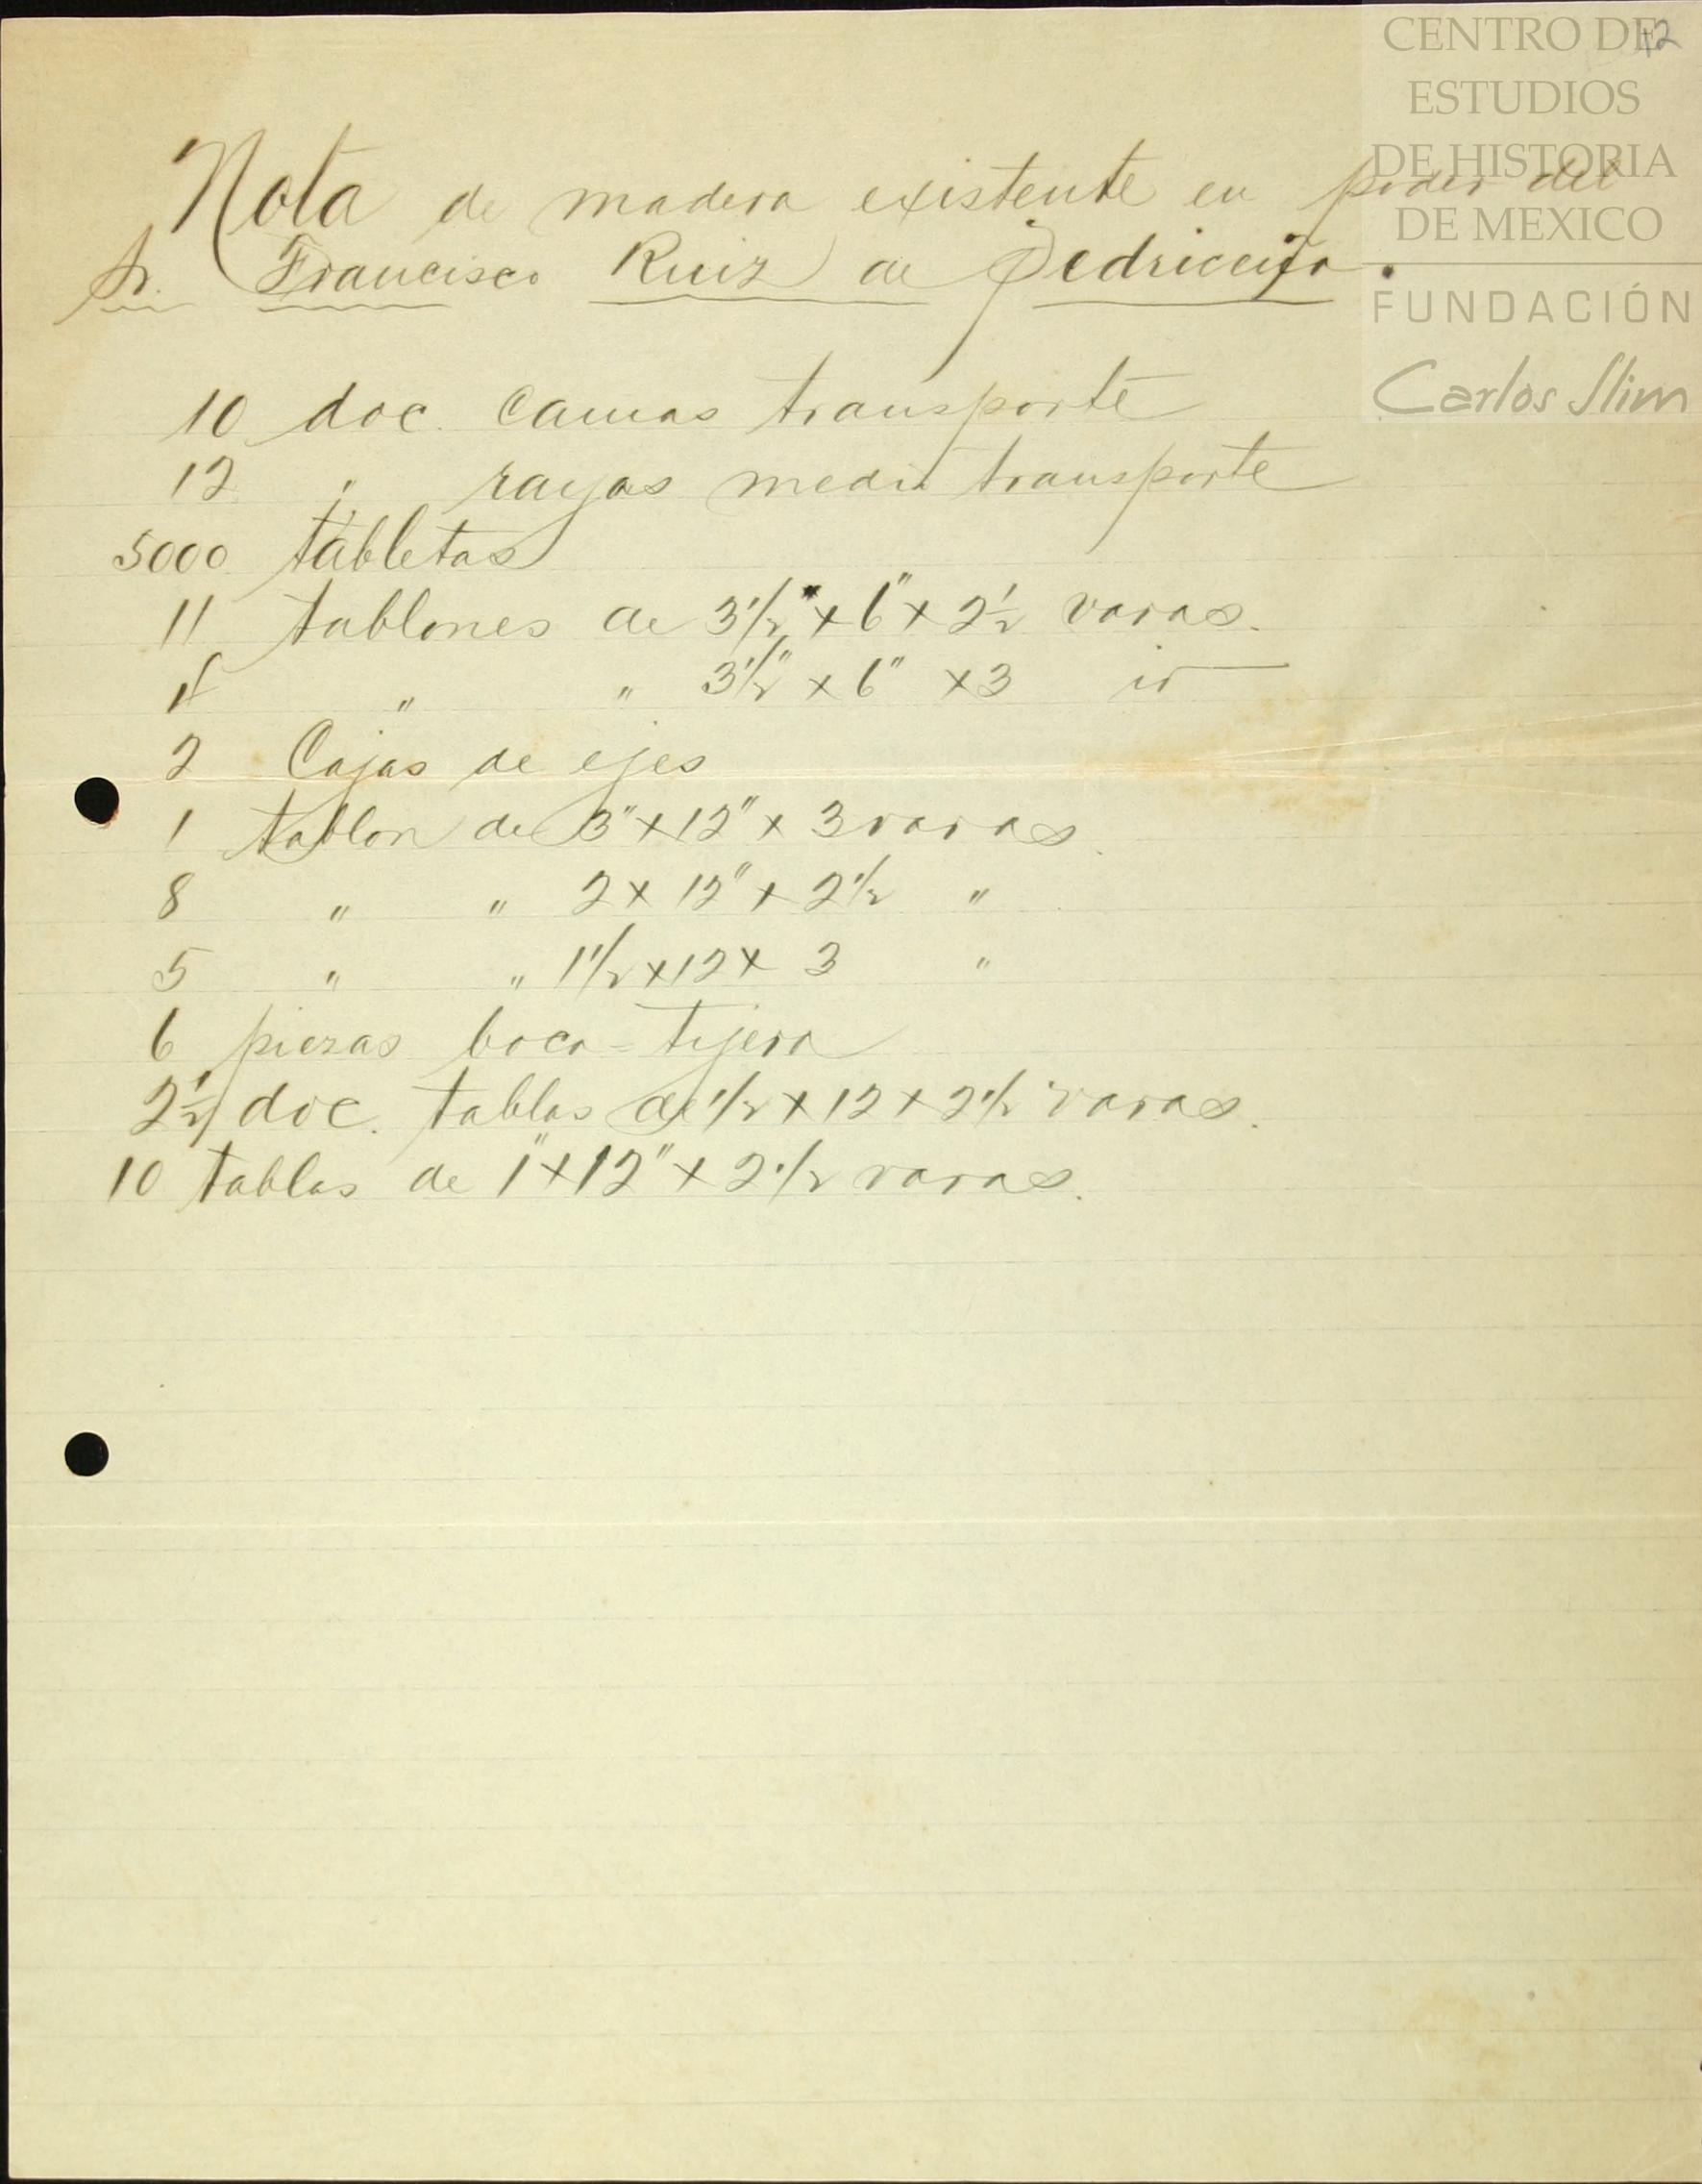 42
CENTRO DE
ESTUDIOS
DE HISTORIA
DE MEXICO
FUNDACIÓN
Carlos Slim
Nota de madera existente en poder del
Sr. Francisco Ruiz de Pedriceña.
10 doc. Camas transporte
12 " rayas medio transporte
5000 tabletas
11 tablones de 3½" x 6" x 2½ varas.
" " 3½" x 6" x 3 id
2 Cajas de ejes
1 tablon de 3" x 12" x 3 varas.
8 " " 2 x 12" x 2½ "
5 " " 1½ x 12 x 3 "
6 piezas boca-tijera
2½ doc. tablas de ½ x 12 x 2½ varas.
10 tablas de 1" x 12" x 2½ varas.